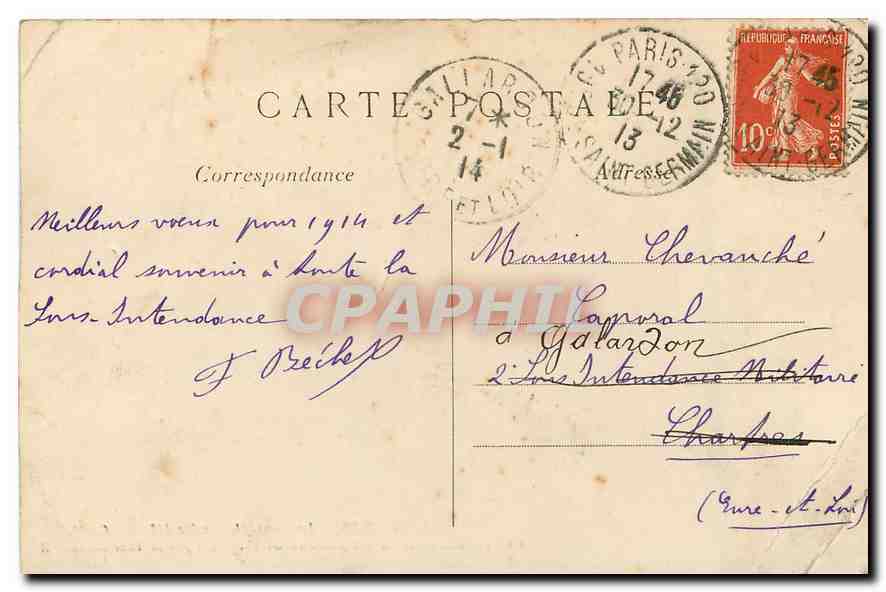 CARTE POSTALE
Correspondance
Adresse
REPUBLIQUE FRANÇAISE
10c
POSTES
PARIS-120
17 45
30-12
13
SAINT GERMAIN
GALLARDON
7 *
2 -1
14
ET LOIR
Meilleurs voeux pour 1914 et
cordial souvenir à toute la
Sous-Intendance
F Béchet
Monsieur Chevanché
Caporal
a Galardon
2e Sous Intendance Militaire
Chartres
(Eure-et-Loir)
CPAPHIL